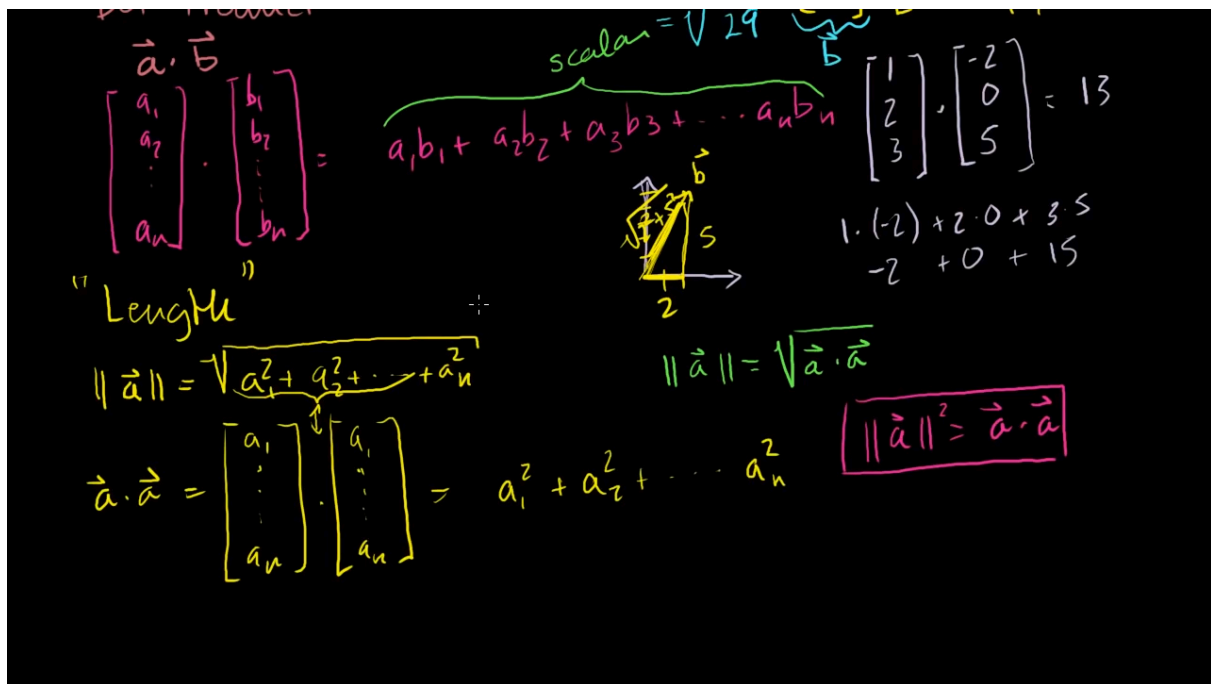 scalar = √29
b⃗
a⃗ · b⃗
[a₁ a₂ ⋮ aₙ] · [b₁ b₂ ⋮ bₙ] = a₁b₁ + a₂b₂ + a₃b3 + ··· aₙbₙ
[1 2 3] · [-2 0 5] = 13
1·(-2) + 2·0 + 3·5
-2 + 0 + 15
b⃗
5
2
"Length"
‖a⃗‖ = √(a₁² + a₂² + ··· + aₙ²)
‖a⃗‖ = √(a⃗ · a⃗)
‖a⃗‖² = a⃗ · a⃗
a⃗ · a⃗ = [a₁ ⋮ aₙ] · [a₁ ⋮ aₙ] = a₁² + a₂² + ···· aₙ²